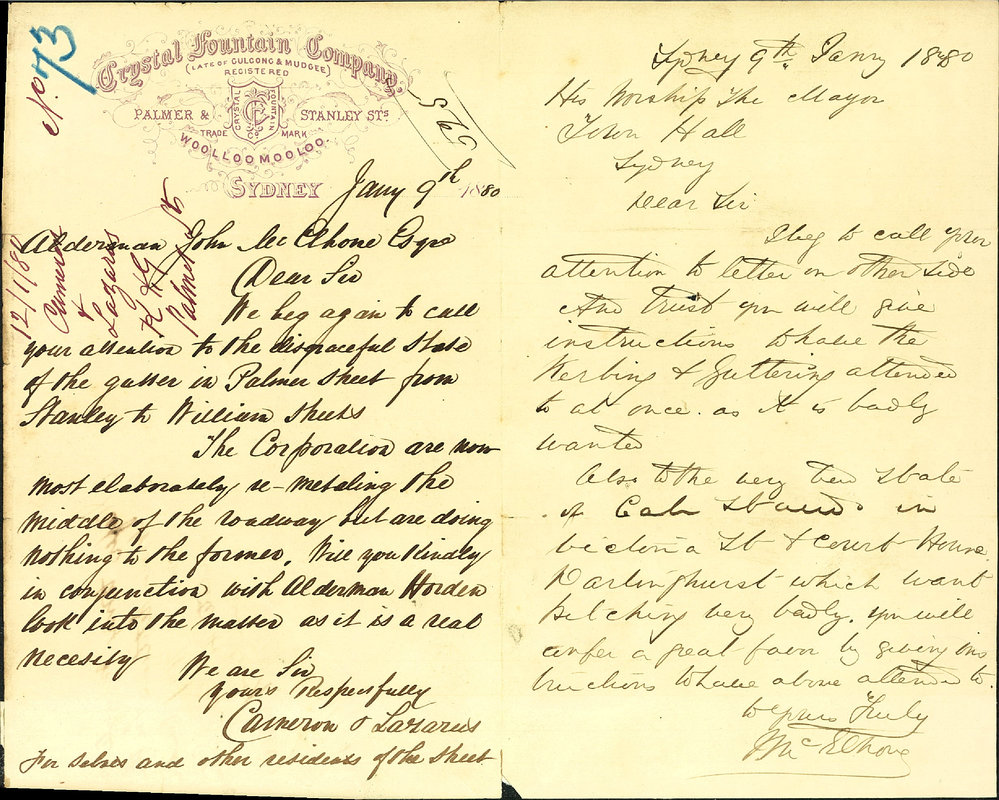 No. 73
Crystal Fountain Company
(LATE OF GULGONG & MUDGEE)
REGISTERED
PALMER & STANLEY STS
CRYSTAL FOUNTAIN Co
TRADE MARK
WOOLLOOMOOLOO.
SYDNEY
Jany 9th 1880
12/1/80
Cameron
&
Lazarus
K & G
Palmer St
Alderman John McElhone Esqre
Dear Sir
We beg again to call
your attention to the disgraceful state
of the gutter in Palmer street from
Stanley to William streets
The Corporation are now
most elaborately re-metaling the
middle of the roadway but are doing
nothing to the former. Will you kindly
in conjunction with Alderman Horden
look into the matter as it is a real
necesity
We are Sir
yours Respectfully
Cameron & Lazarus
For selves and other residents of the street
Sydney 9th Jany 1880
His Worship The Mayor
Town Hall
Sydney
Dear Sir
I beg to call your
attention to letter on other side
And trust you will give
instructions to have the
Kerbing & Guttering attended
to at once. as it is badly
wanted
Also to the very bad state
of Cab Stand in
Victoria St & Court House
Darlinghurst which want
pitching very badly. you will
confer a great favor by giving ins
tructions to have above attended to
Yours Truly
J McElhone